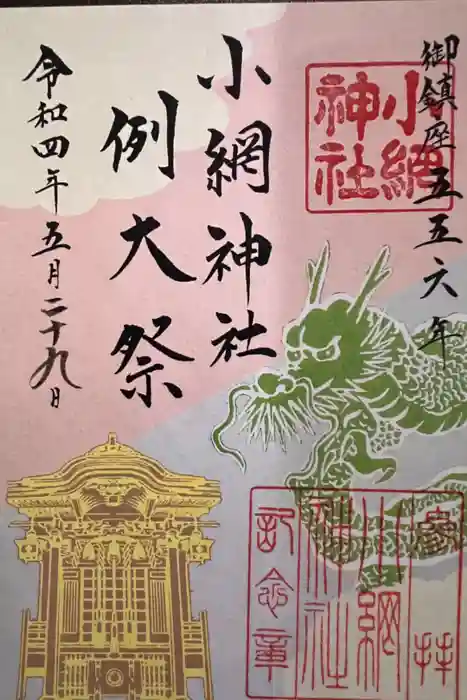 御鎮座五五六年
小網
神社
小網神社
例大祭
令和四年五月二十九日
參拝
小網
神社
記念章